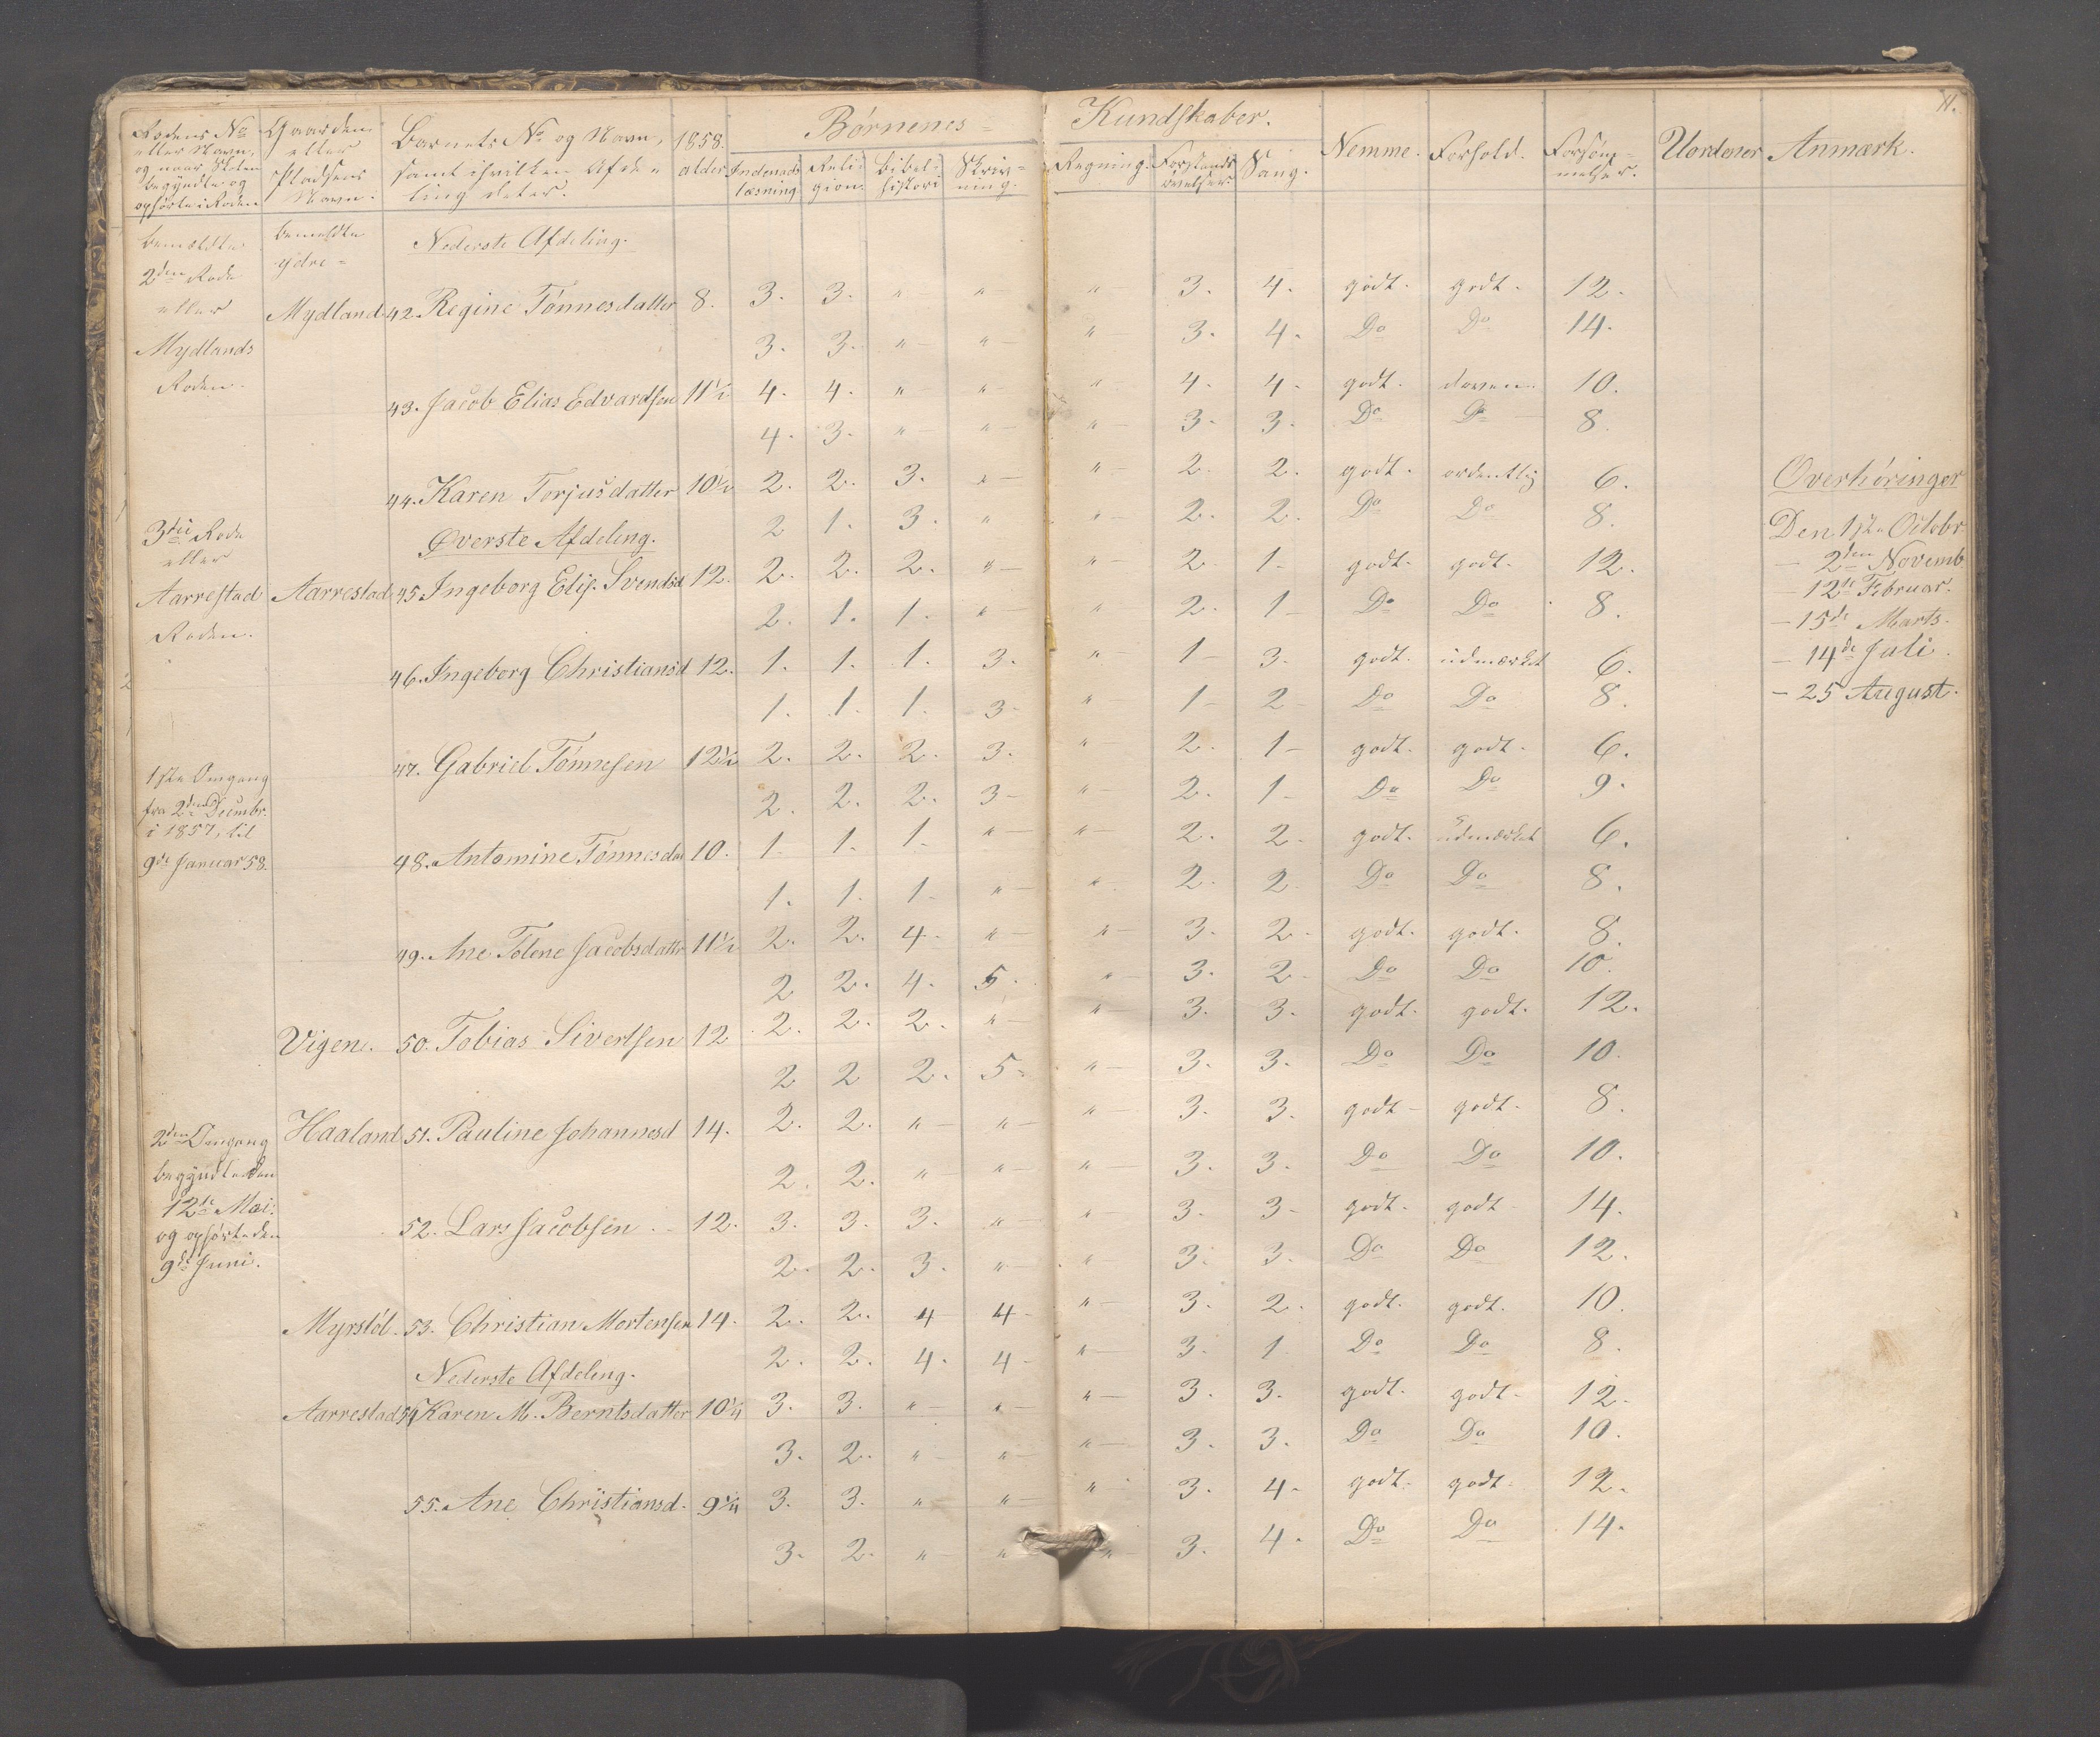 11.
Børnenes Kundskaber.
Rodens No eller Navn, og naar Skolen begyndte og ophørte i Roden
Gaarden eller Pladsens Navn.
Barnets No og Navn, samt i hvilken Afdeling det er.
1858. alder
Indenads læsning
Religion
bibelhistori
Skrivning.
Regning.
Forstands øvelser.
Sang.
Nemme.
Forhold.
Forsømmelser.
Uordener
Anmærk.
bemeldte 2den Rode eller Mydlands Roden.
bemeldte ydre =
Nederste Afdeling.
Mydland 42. Regine Tønnesdatter 8. 3. 3. " " " 3. 4. godt. godt. 12.
3. 3. " " " 3. 4. Do Do 14.
43. Jacob Elias Edvardsen 11½ 4. 4. " " " 4. 4. godt. doven. 10.
4. 3. " " " 3. 3. Do Do 8.
44. Karen Torjusdatter 10½ 2. 2. 3. " " 2. 2. godt. ordentlig 6.
2 1. 3. " " 2. 2. Do Do 8.
3die Rode eller Aarrestad Roden.
Øverste Afdeling.
Aarrestad 45 Ingeborg Elis. Svendsd 12. 2. 2. 2. " " 2. 1. godt. godt. 12.
2. 1. 1. " " 2. 1 Do Do 8.
46. Ingeborg Christiansd 12. 1. 1. 1. 3. " 1 3. godt. udmærket 6.
1. 1. 1. 3 " 1 2 Do Do 8.
47. Gabriel Tønnesen 12½ 2. 2. 2. 3. " 2. 1 godt. godt. 6.
2. 2. 2. 3 " 2. 1 Do Do 9.
1ste Omgang
fra 2den Decembr.
i 1857, til
9de Januar 58.
48. Antomine Tønnesdat 10. 1. 1. 1. " " 2. 2. godt. udmærket 6.
1. 1. 1. " " 2. 2 Do Do 8.
49. Ane Tolene Jacobsdatter 11½ 2. 2. 4. " " 3. 2. godt. godt. 8.
2 2. 4. 5. " 3. 2. Do Do 10.
Vigen. 50. Tobias Sivertsen 12 2. 2. 2. " " 3. 3. godt. godt. 12.
2 2 2. 5. " 3. 3. Do Do 10.
Haaland 51. Pauline Johannesd 14. 2. 2. " " " 3. 3. godt godt. 8.
2. 2. " " " 3. 3. Do Do 10.
2den Omgang
begyndte den
12te Mai.
og ophørte den
9de Juni.
52. Lars Jacobsen 12. 3. 3. 3. " " 3. 3 godt. godt 14.
2. 2. 3. " " 3. 3. Do Do 12.
Myrstøl. 53. Christian Mortensen 14. 2. 2. 4 4 " 3. 2. godt. godt. 10.
2. 2. 4. 4 " 3. 1 Do Do 8.
Nederste Afdeling.
Aarrestad 54 Karen M. Berntsdatter 10¼ 3. 3. " " " 3. 3. godt. godt 12.
3. 2. " " " 3. 3. Do Do 10.
55. Ane Christiansd. 9¼ 3. 3. " " " 3. 4. godt. godt 12.
3. 2. " " " 3. 4. Do Do 14.
Overhøringer
Den 1ste Octobr.
– 2den Novemb.
– 12te Februar.
– 15de Marts.
– 14de Juli.
– 25 August.